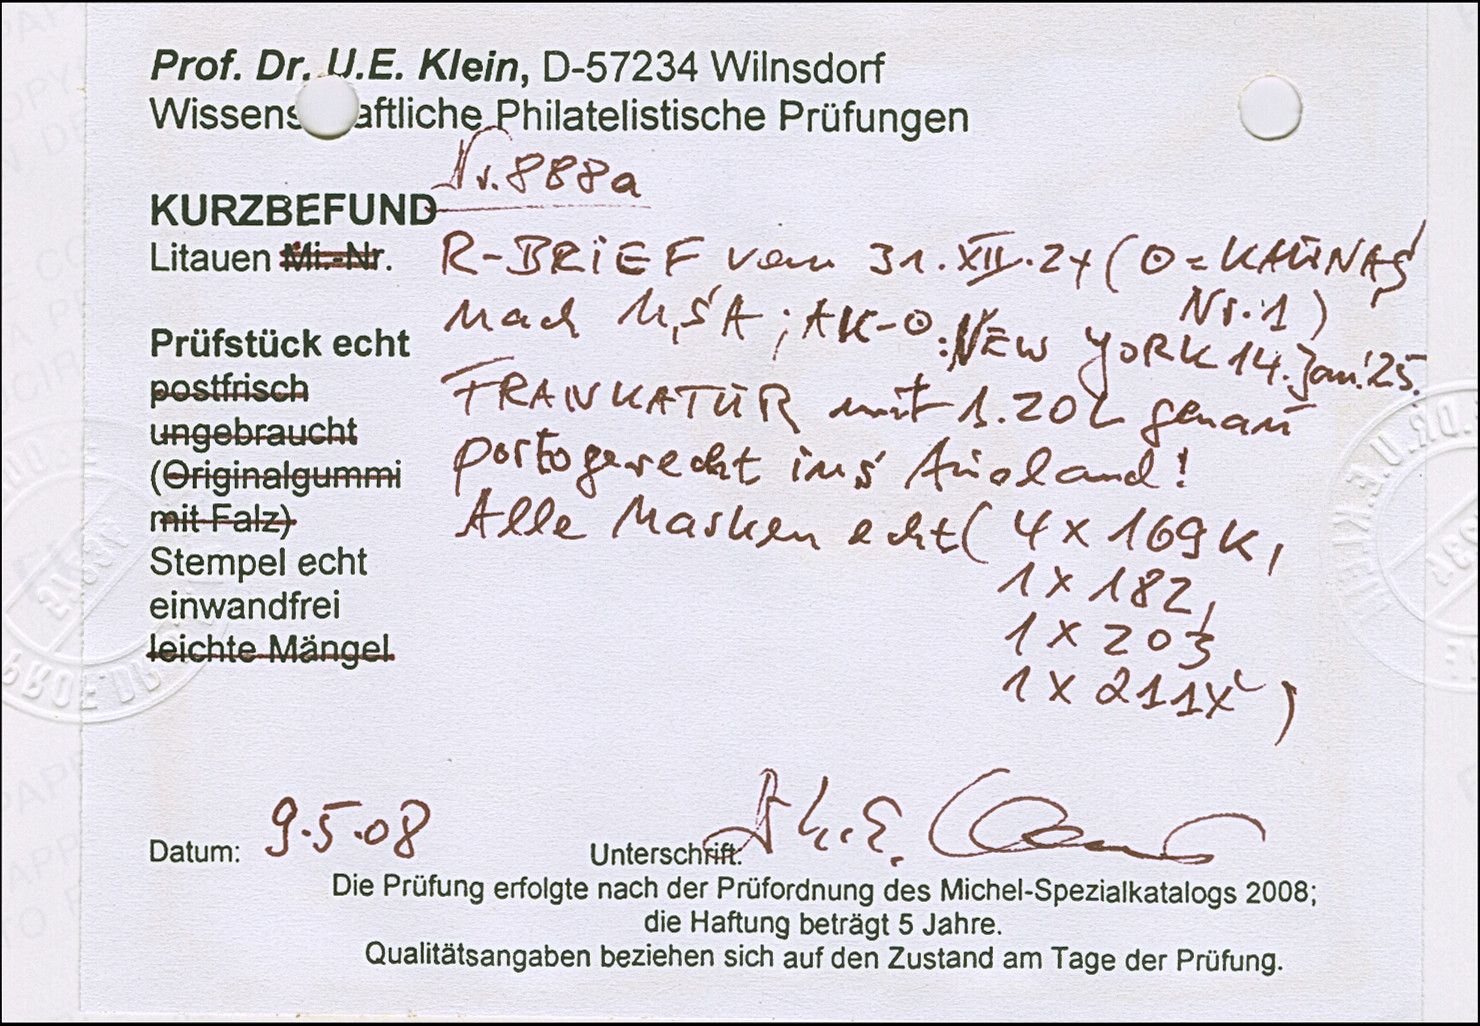 Prof. Dr. U.E. Klein, D-57234 Wilnsdorf
Wissens aftliche Philatelistische Prüfungen
Nr. 888a
KURZBEFUND
Litauen Mi.-Nr. R-BRiEF vom 31.XII.24 (⊙=KAUNAS
Nr.1)
nach USA; AK-⊙: NEW YORK 14.Jan.'25.
Prüfstück echt
postfrisch FRANKATUR mit 1.20 L genau
ungebraucht
(Originalgummi portogerecht ins Ausland!
mit Falz) Alle Marken echt (4 x 169 K,
Stempel echt
1 x 182,
einwandfrei
1 x 203
leichte Mängel
1 x 211X)
Datum: 9.5.08
Unterschrift: U.E. Klein
Die Prüfung erfolgte nach der Prüfordnung des Michel-Spezialkatalogs 2008;
die Haftung beträgt 5 Jahre.
Qualitätsangaben beziehen sich auf den Zustand am Tage der Prüfung.